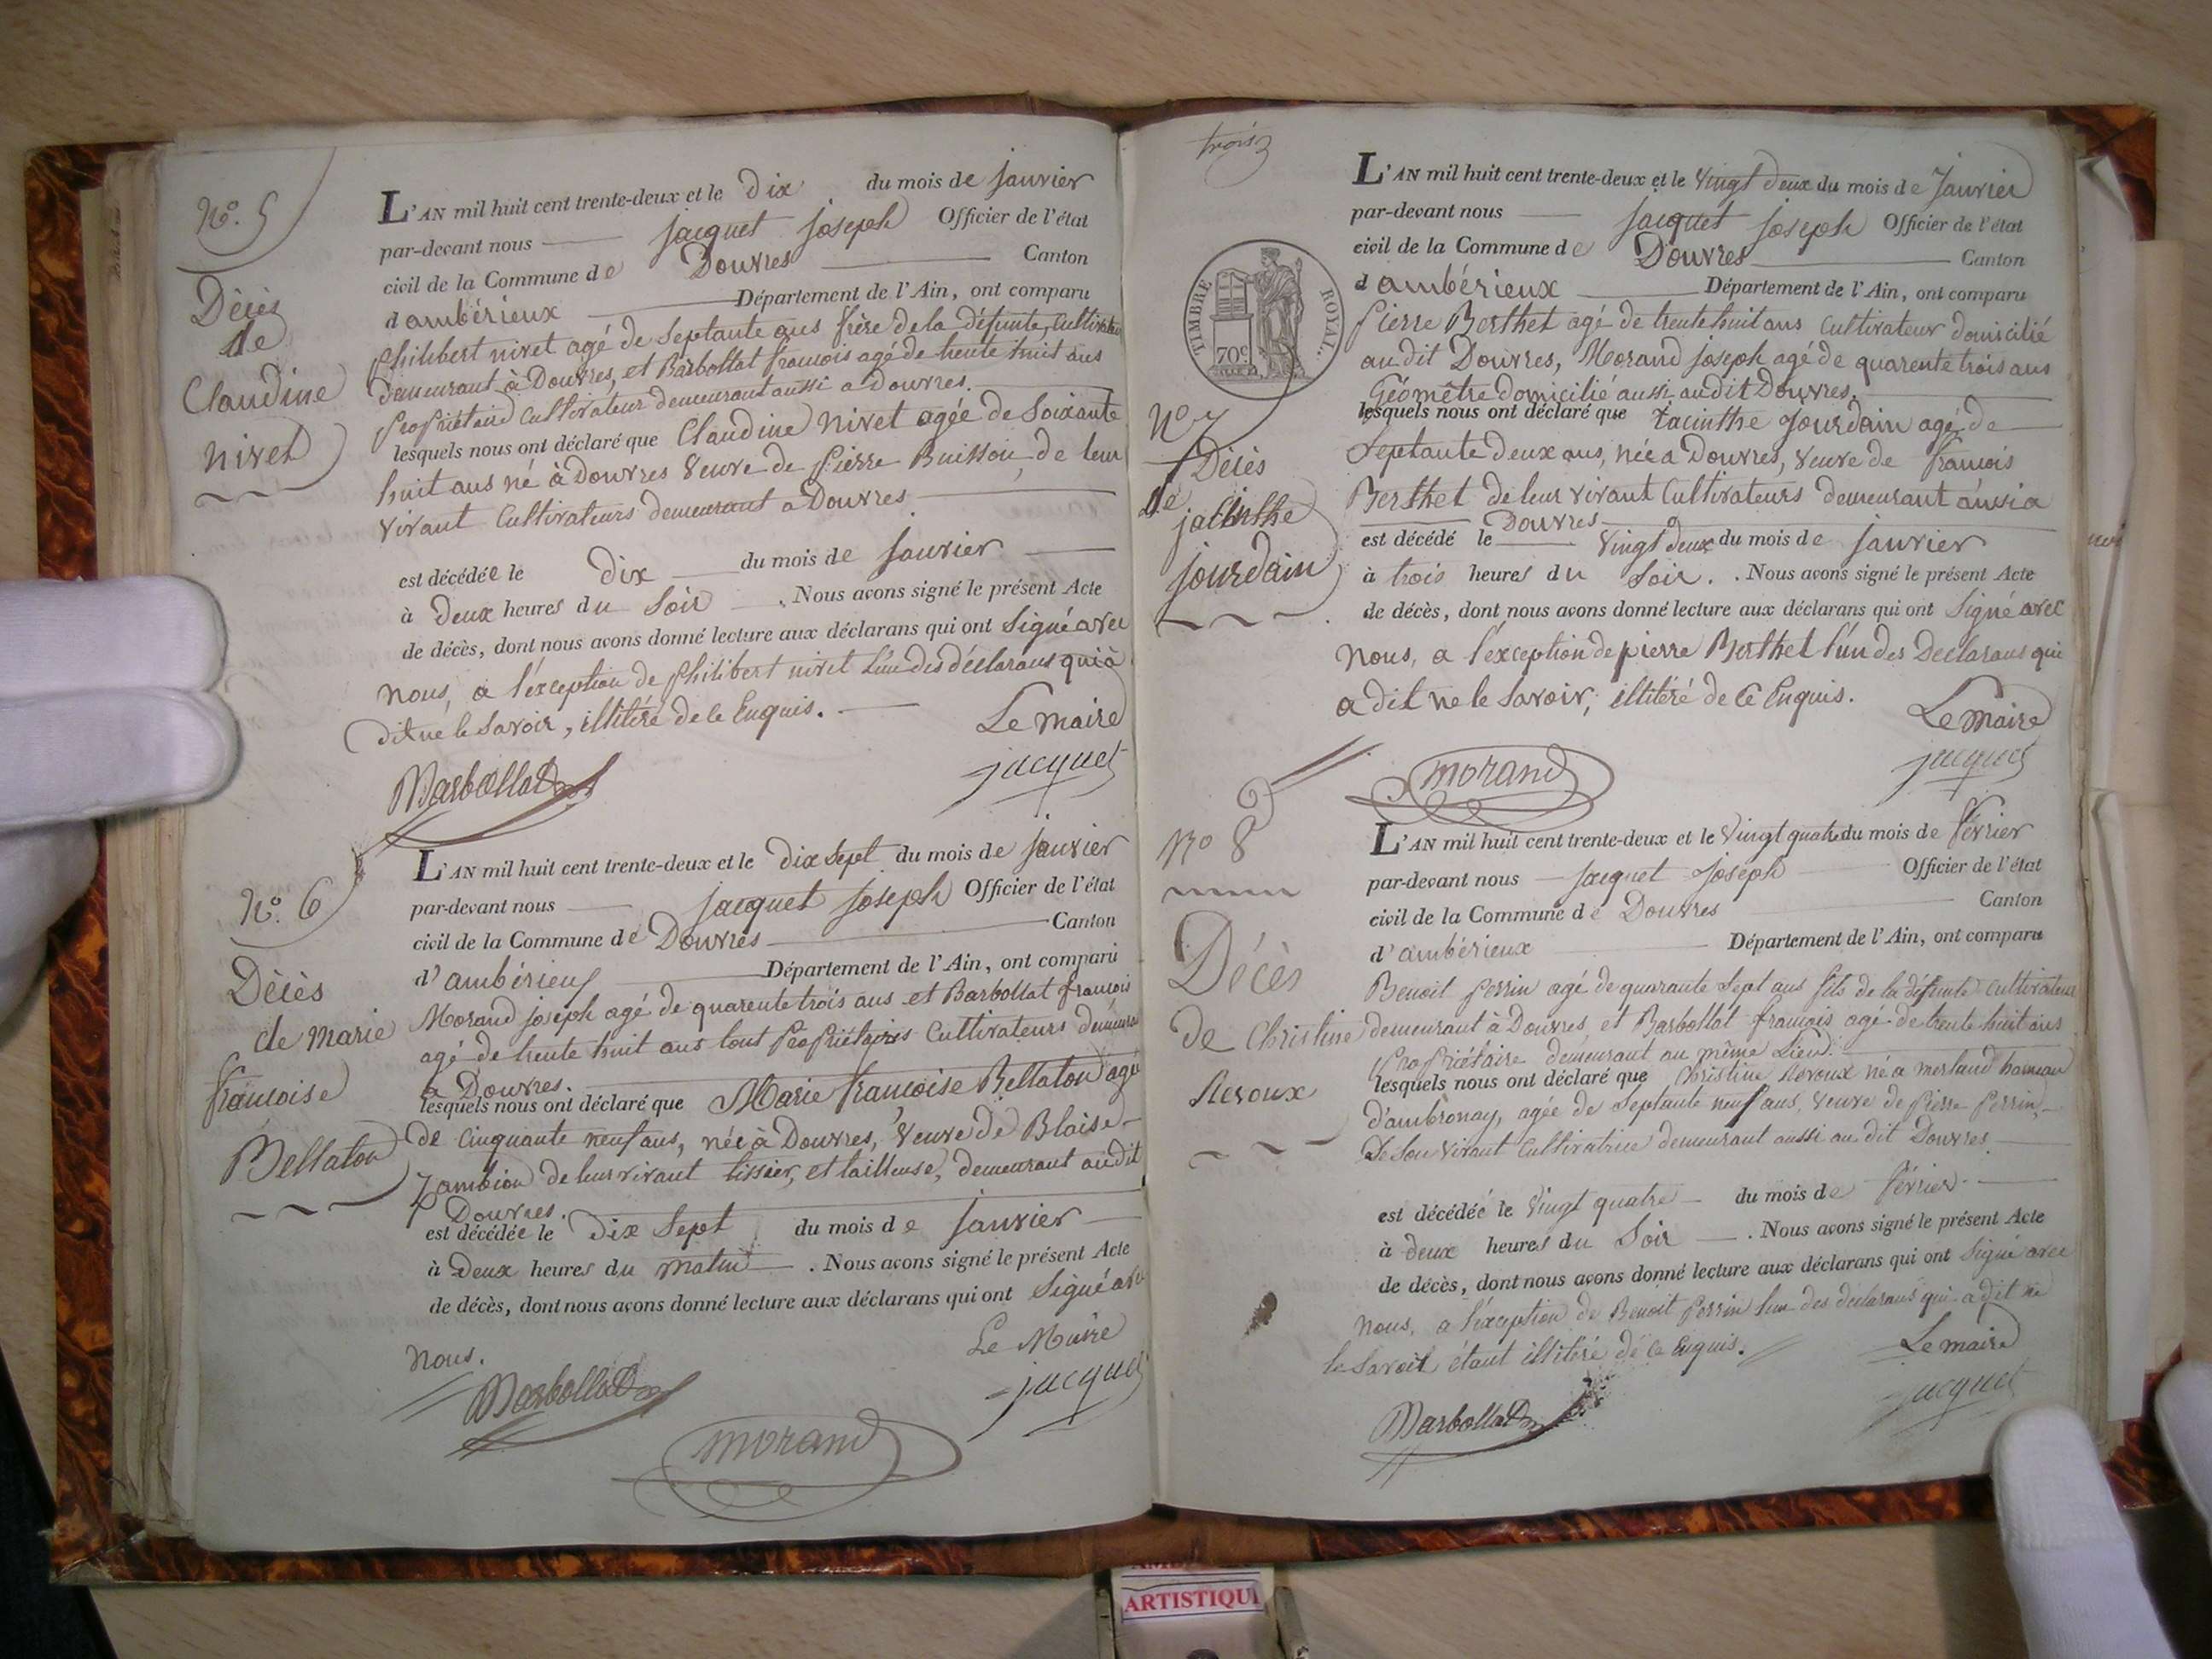 N.º 5
Décès
de
Claudine
nivet
L'AN mil huit cent trente-deux et le dix du mois de janvier
par-devant nous jacquet joseph Officier de l'état
civil de la Commune de Douvres Canton
d'ambérieux Département de l'Ain, ont comparu
philibert nivet agé de Septante ans frère de la défunte, Cultivateur
demeurant à Douvres, et Barbollat françois agé de trente huit ans
propriétaire Cultivateur demeurant aussi a douvres.
lesquels nous ont déclaré que Claudine nivet agée de Soixante
huit ans né à Douvres Veuve de Pierre Buisson, de leur
vivant Cultivateurs demeurant a Douvres
est décédée le dix du mois de janvier
à deux heures du Soir. Nous avons signé le présent Acte
de décès, dont nous avons donné lecture aux déclarans qui ont Signé avec
nous, a l'exception de philibert nivet l'un des déclarans qui à
dit ne le Savoir, illitéré de ce Enquis.
Le maire
Barbollat
jacquet
N.º 6
Décès
de marie
françoise
Bellaton
L'AN mil huit cent trente-deux et le dix Sept du mois de janvier
par-devant nous jacquet joseph Officier de l'état
civil de la Commune de Douvres Canton
d'ambérieux Département de l'Ain, ont comparu
Morand joseph agé de quarente trois ans et Barbollat françois
agé de trente huit ans tout Propriétaires Cultivateurs
a Douvres.
lesquels nous ont déclaré que Marie françoise Bellaton agé
de Cinquante neuf ans, née à Douvres, Veuve de Blaise
de leur vivant tissier, et tailleuse, demeurant audit
Douvres.
est décédée le dix Sept du mois de janvier
à Deux heures du matin. Nous avons signé le présent Acte
de décès, dont nous avons donné lecture aux déclarans qui ont Signé avec
nous.
Le Maire
Barbollat
jacquet
morand
trois
TIMBRE ROYAL.
70c
Nº 7
Décès
de
jacinthe
jourdain
L'AN mil huit cent trente-deux et le Vingt deux du mois de Janvier
par-devant nous jacquet joseph Officier de l'état
civil de la Commune de Douvres Canton
d'ambérieux Département de l'Ain, ont comparu
Pierre Berthet agé de trente huit ans Cultivateur domicilié
audit Douvres, Morand joseph agé de quarente trois ans
Géomêtre domicilié aussi audit Douvres.
lesquels nous ont déclaré que Jacinthe Jourdain agé de
Septante deux ans, née a Douvres, Veuve de françois
Berthet de leur vivant Cultivateurs demeurant aussi a
Douvres
est décédé le Vingt deux du mois de janvier
à trois heures du Soir. Nous avons signé le présent Acte
de décès, dont nous avons donné lecture aux déclarans qui ont Signé avec
nous, a l'exception de pierre Berthet l'un des Declarans qui
a dit ne le Savoir, illitéré de Ce Enquis.
Le maire
morand
jacquet
Nº 8
Décès
de Christine
L'AN mil huit cent trente-deux et le Vingt quatre du mois de février
par-devant nous jacquet joseph Officier de l'état
civil de la Commune de Douvres Canton
d'ambérieux Département de l'Ain, ont comparu
Benoit Perrin agé de quarante Sept ans fils de la défunte Cultivateur
demeurant à Douvres, et Barbollat françois agé de trente huit ans
Propriétaire demeurant au même Lieu.
lesquels nous ont déclaré que Christine né a merland hameau
d'ambronay, agée de Septante neuf ans, Veuve de Pierre Perrin,
De Son Vivant Cultivatrice demeurant aussi au dit Douvres
est décédée le Vingt quatre du mois de février
à deux heures du Soir. Nous avons signé le présent Acte
de décès, dont nous avons donné lecture aux déclarans qui ont Signé avec
nous, a l'exception de Benoit Perrin l'un des déclarans qui a dit ne
le Savoir étant illitéré de Ce Enquis.
Le maire
Barbollat
jacquet
ARTISTIQU